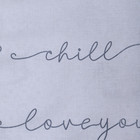 chill
love you